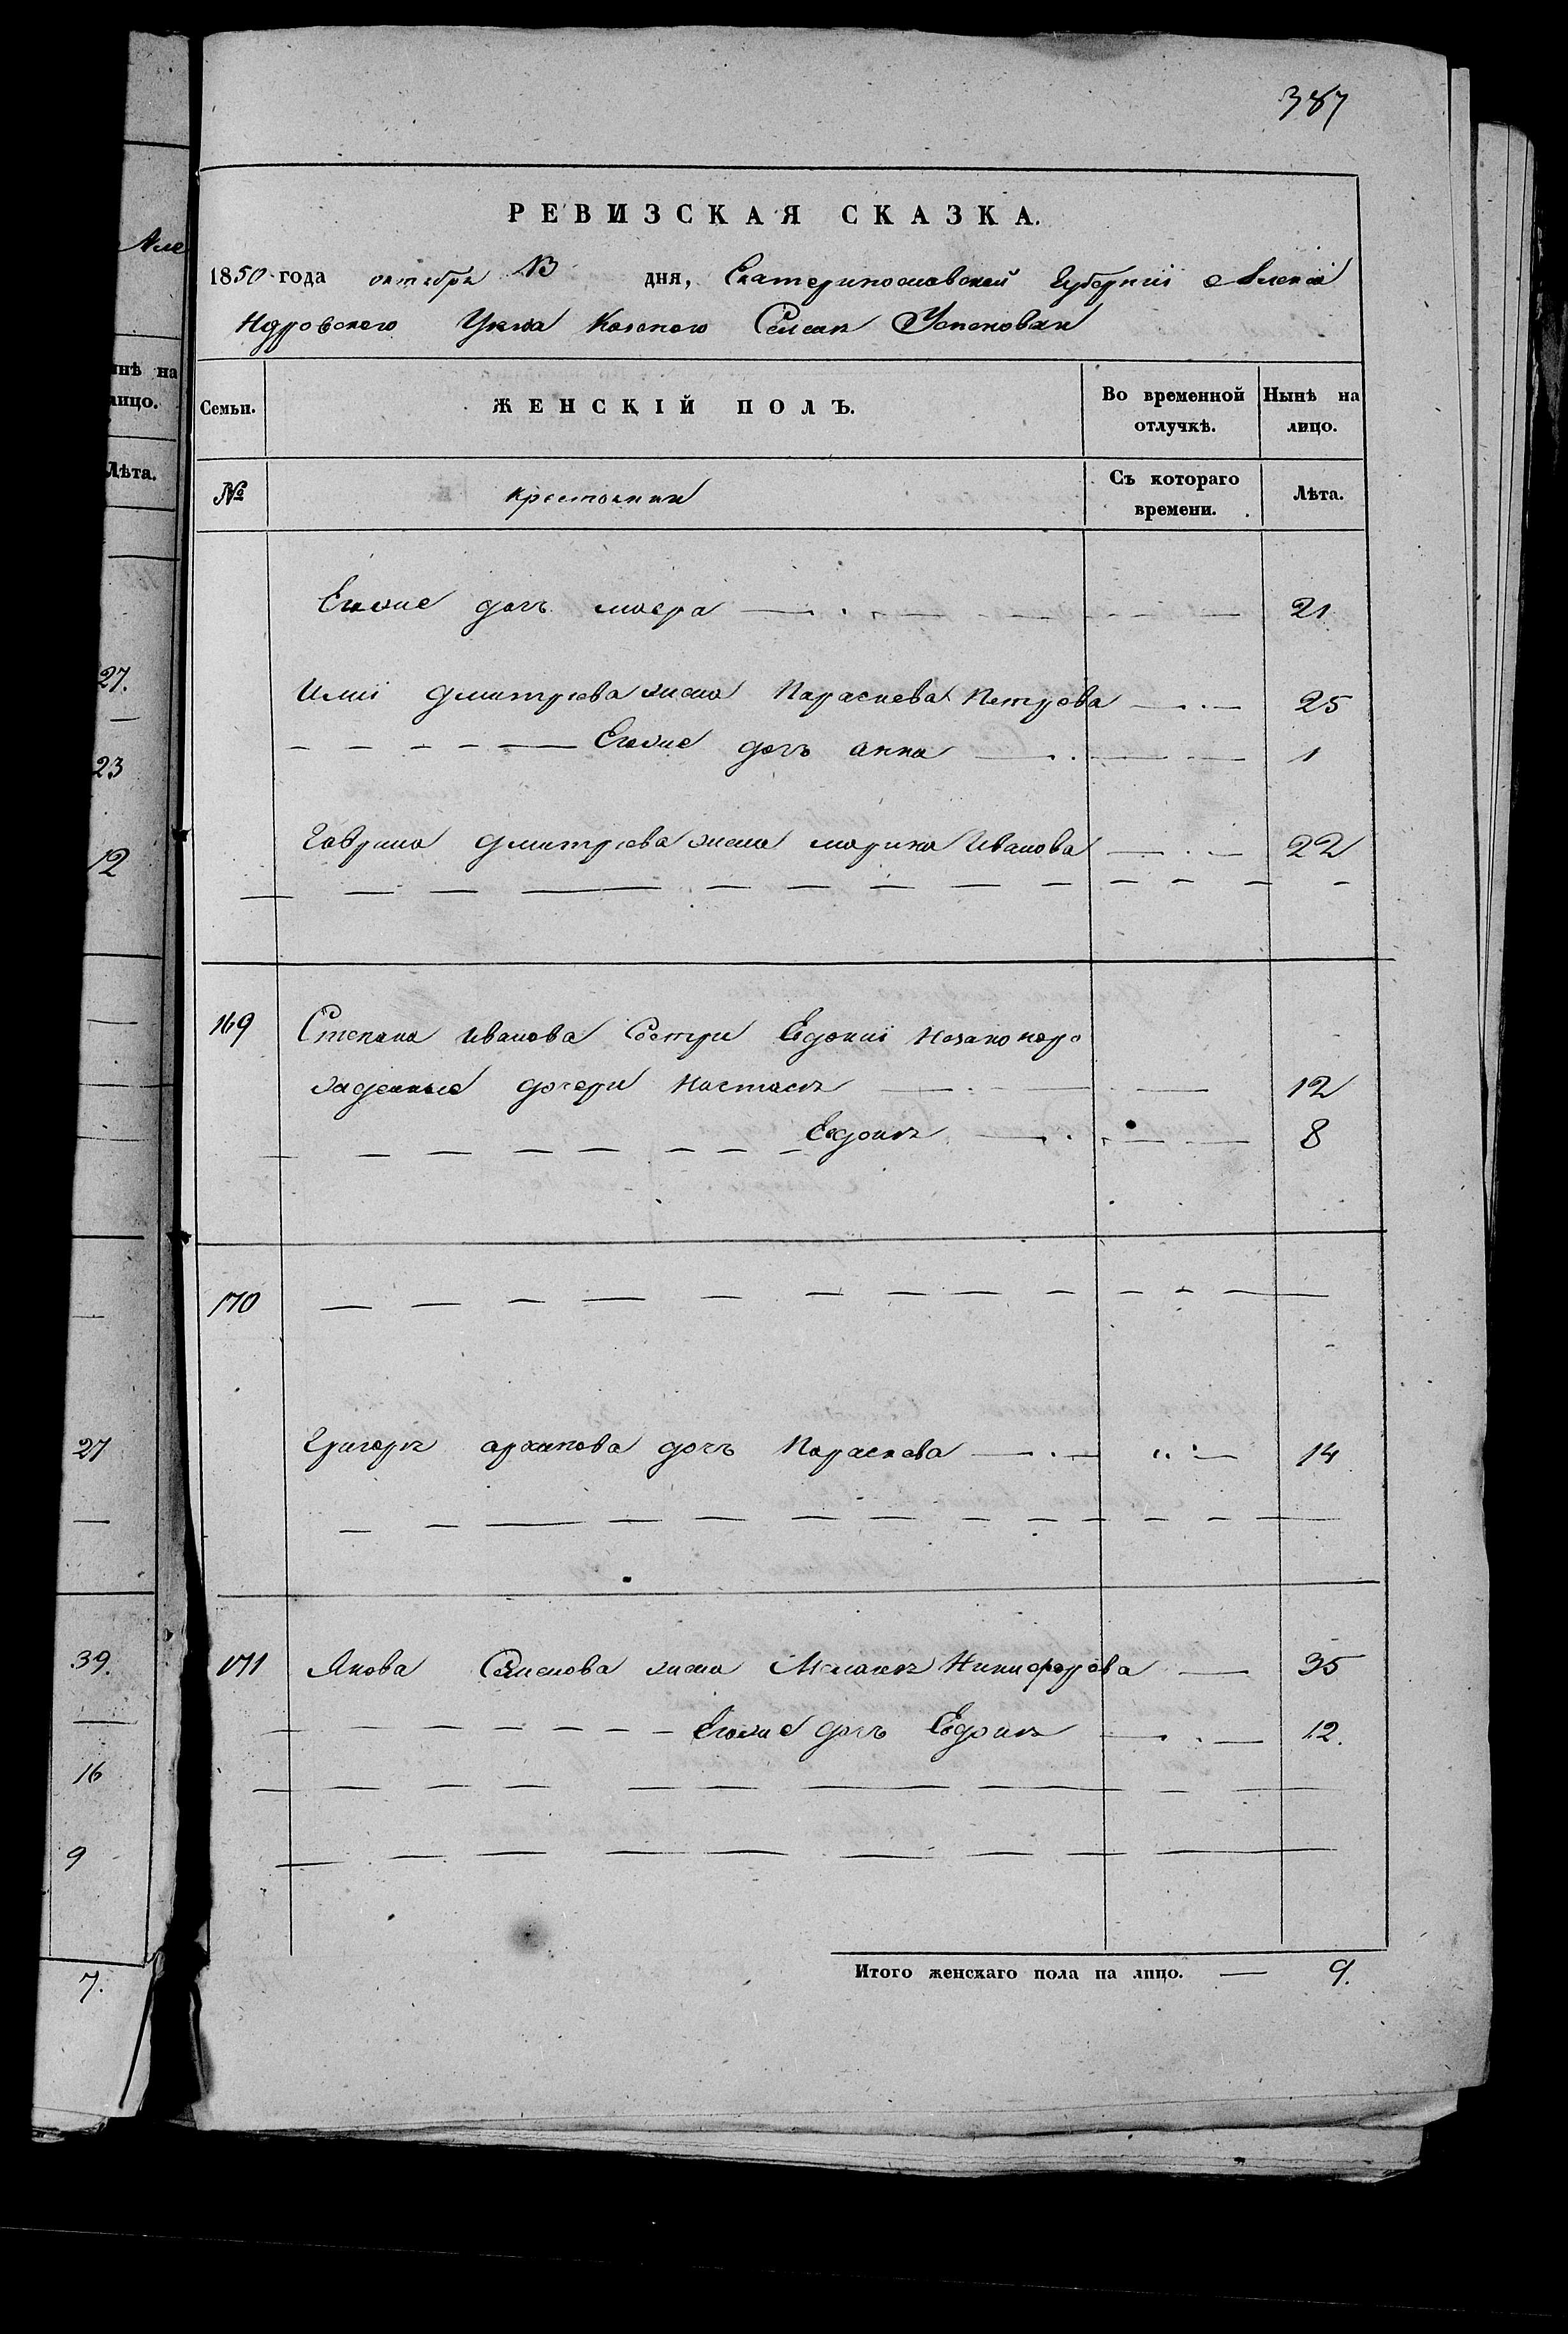 387
РЕВИЗСКАЯ СКАЗКА.
1850 года октебря 13 дня, Екатеринославской Губернии Алекса
ндровского Уезда Казеного Селения Успеновки
Семьи. ЖЕНСКІЙ ПОЛЪ. Во временной отлучкѣ. Нынѣ на лицо.
№ крестьянки Съ котораго времени. Лѣта.
дочъ 21
Дмитриева жена Параскева Петрова 25
Егоже дочъ анна 1
Гаврила Дмитриева жена марина Иванова 22
169 Степана Иванова Сестри Евдокиі Незаконоро
жденные дочери Настасия 12
Евдокия 8
170
Григория архипова дочъ Параскева 14
171 Якова Семенова жена Мелания Никифорова 35
Егоже дочъ Евдокия 12.
Итого женскаго пола на лицо. 9.
Але
нѣ на
лицо.
Лѣта.
27.
23
12
27
39.
16
9
7.